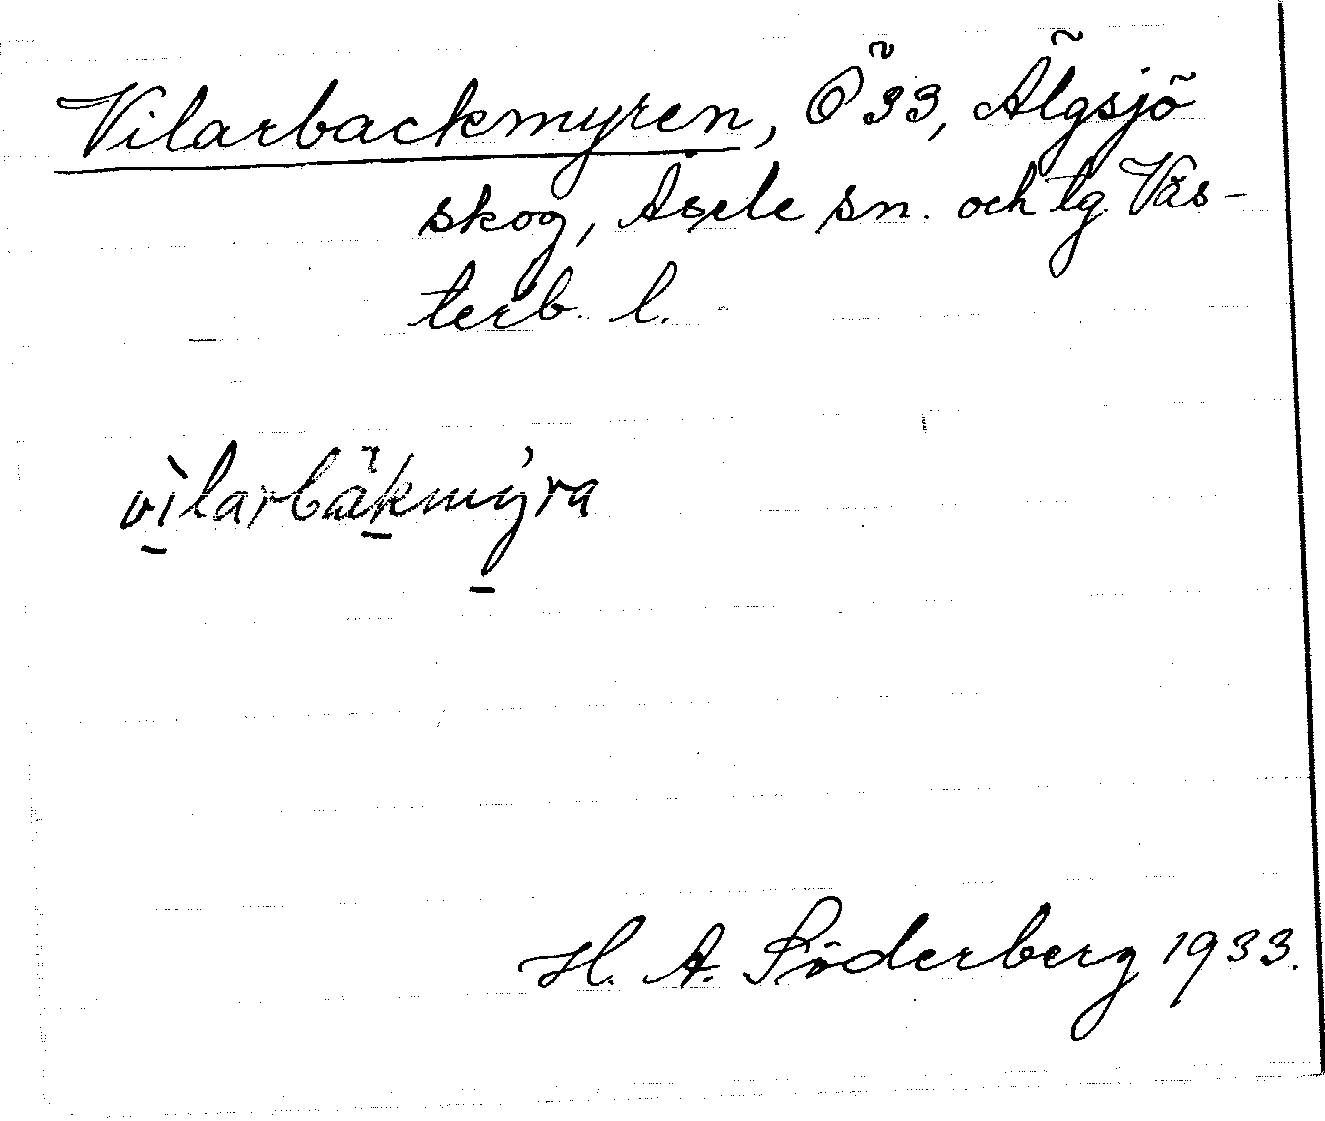 Vilarbackmyren, Ö 33, Älgsjö
skog, Åsele sn. och lg. Väs-
terb. l.
vìlarbäkmýra
H. A. Söderberg 1933.